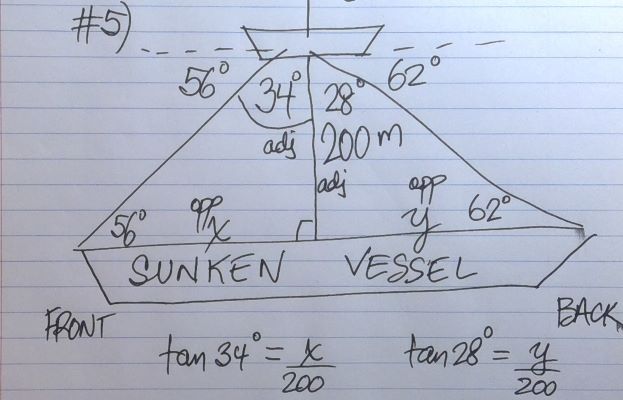 #5)
56° 34° 28° 62°
adj 200 m
adj
56° opp x opp y 62°
SUNKEN VESSEL
FRONT BACK
tan 34° = x/200 tan 28° = y/200